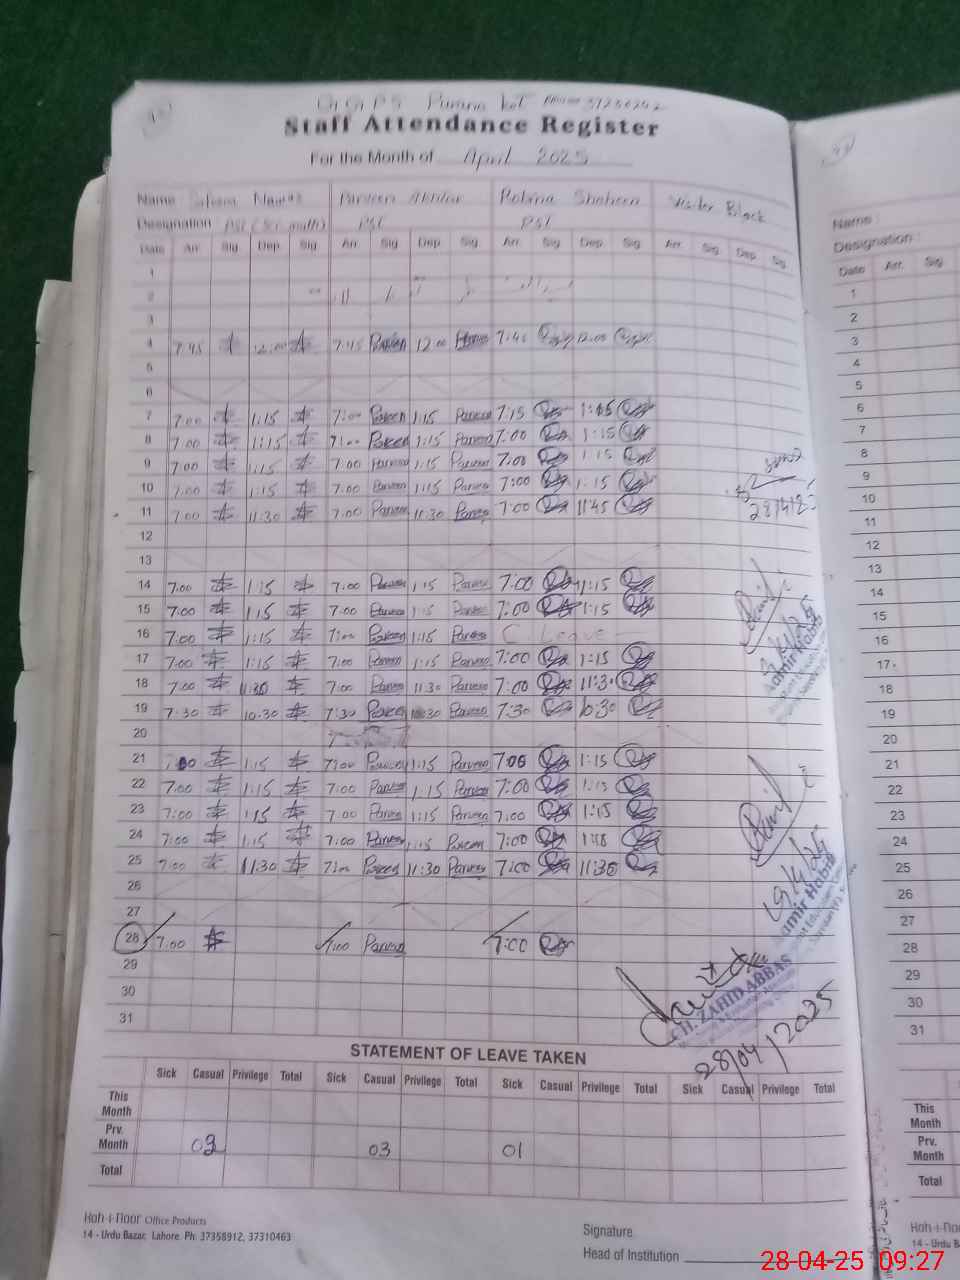 G.G.P.S Purana Kot
Staff Attendance Register
For the Month of April 2025
Name Nawaz Parveen Akhtar Robina Shaheen Visitor Block
Designation PST (Sci math) PST PST
Date Arr. Sig Dep. Sig Arr. Sig Dep. Sig Arr. Sig Dep. Sig Arr. Sig. Dep. Sig.
1
2
3
4 7:45 12:00 7:45 Parveen 12:00 7:45 12:00
5
6
7 7:00 1:15 7:00 Parveen 1:15 Parveen 7:15 1:15
8 7:00 1:15 7:00 Parveen 1:15 Parveen 7:00 1:15
9 7:00 1:15 7:00 Parveen 1:15 Parveen 7:00 1:15
10 7:00 1:15 7:00 Parveen 1:15 Parveen 7:00 1:15
11 7:00 11:30 7:00 Parveen 11:30 Parveen 7:00 11:45
12
13
14 7:00 1:15 7:00 Parveen 1:15 Parveen 7:00 1:15
15 7:00 1:15 7:00 Parveen 1:15 Parveen 7:00 1:15
16 7:00 1:15 7:00 Parveen 1:15 Parveen C. Leave
17 7:00 1:15 7:00 Parveen 1:15 Parveen 7:00 1:15
18 7:00 11:30 7:00 Parveen 11:30 Parveen 7:00 11:30
19 7:30 10:30 7:30 Parveen 10:30 Parveen 7:30 10:30
20
21 7:00 1:15 7:00 Parveen 1:15 Parveen 7:00 1:15
22 7:00 1:15 7:00 Parveen 1:15 Parveen 7:00 1:15
23 7:00 1:15 7:00 Parveen 1:15 Parveen 7:00 1:15
24 7:00 1:15 7:00 Parveen 1:15 Parveen 7:00
25 7:00 11:30 7:00 Parveen 11:30 Parveen 7:00 11:30
26
27
28 7:00 7:00 Parveen 7:00
29
30
31
Aamir Habib
19/4/25
Aamir Habib
CH. ZAHID ABBAS
28/04/2025
STATEMENT OF LEAVE TAKEN
Sick Casual Privilege Total Sick Casual Privilege Total Sick Casual Privilege Total Sick Casual Privilege Total
This Month
Prv. Month 03 03 01
Total
Hoh-i-Noor Office Products
14 - Urdu Bazar, Lahore. Ph: 37358912, 37310463
Signature
Head of Institution
Name :
Designation :
Date Arr. Sig
1
2
3
4
5
6
7
8
9
10
11
12
13
14
15
16
17
18
19
20
21
22
23
24
25
26
27
28
29
30
31
This Month
Prv. Month
Total
Hoh-i-Noo
14 - Urdu Ba
28-04-25 09:27